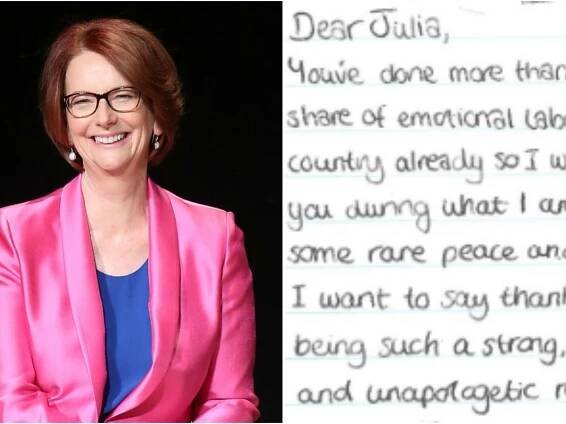 Dear Julia,
You've done more than
share of emotional labo
country already so I w
you during what I am
some rare peace and
I want to say thank
being such a strong,
and unapologetic r